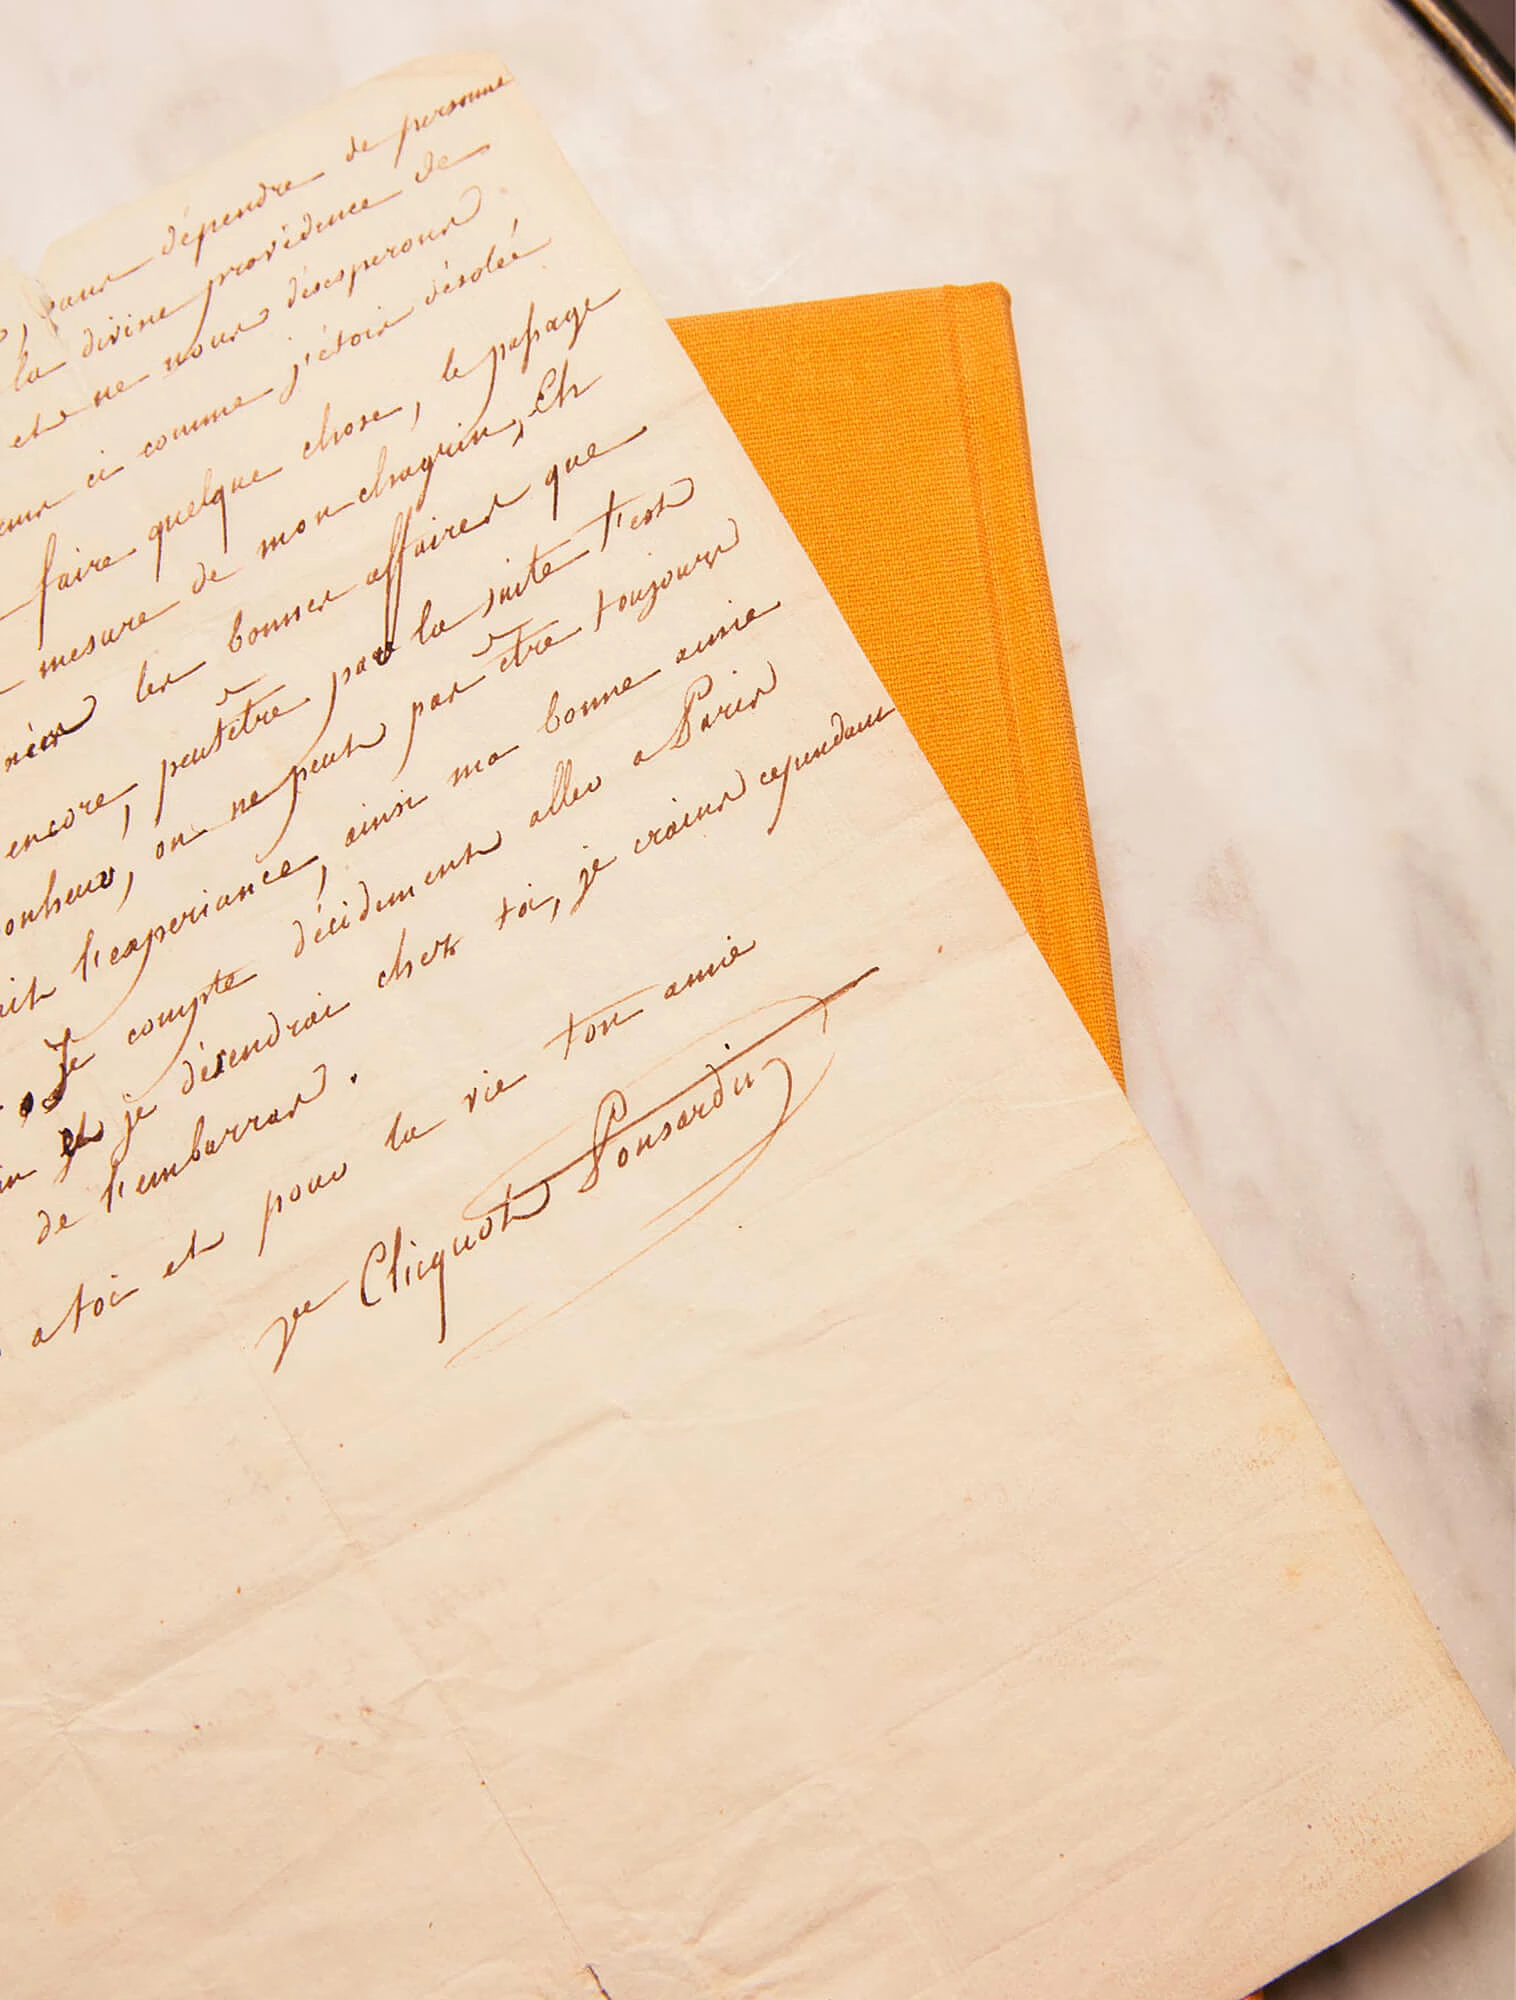 , sans dépendre de personne
la divine providence de
et ne nous désesperons
ci comme j'étois désolée
faire quelque chose, le passage
mesure de mon chagrin, Eh
les bonnes affaires que
encore, peutêtre par la suite t'est
onheur, on ne peut pas être toujours
l'experiance, ainsi ma bonne amie
Je compte décidement aller a Paris
et je désendrai chez toi, je crains cependant
de l'embarras.
a toi et pour la vie ton amie
ve Clicquot Ponsardin